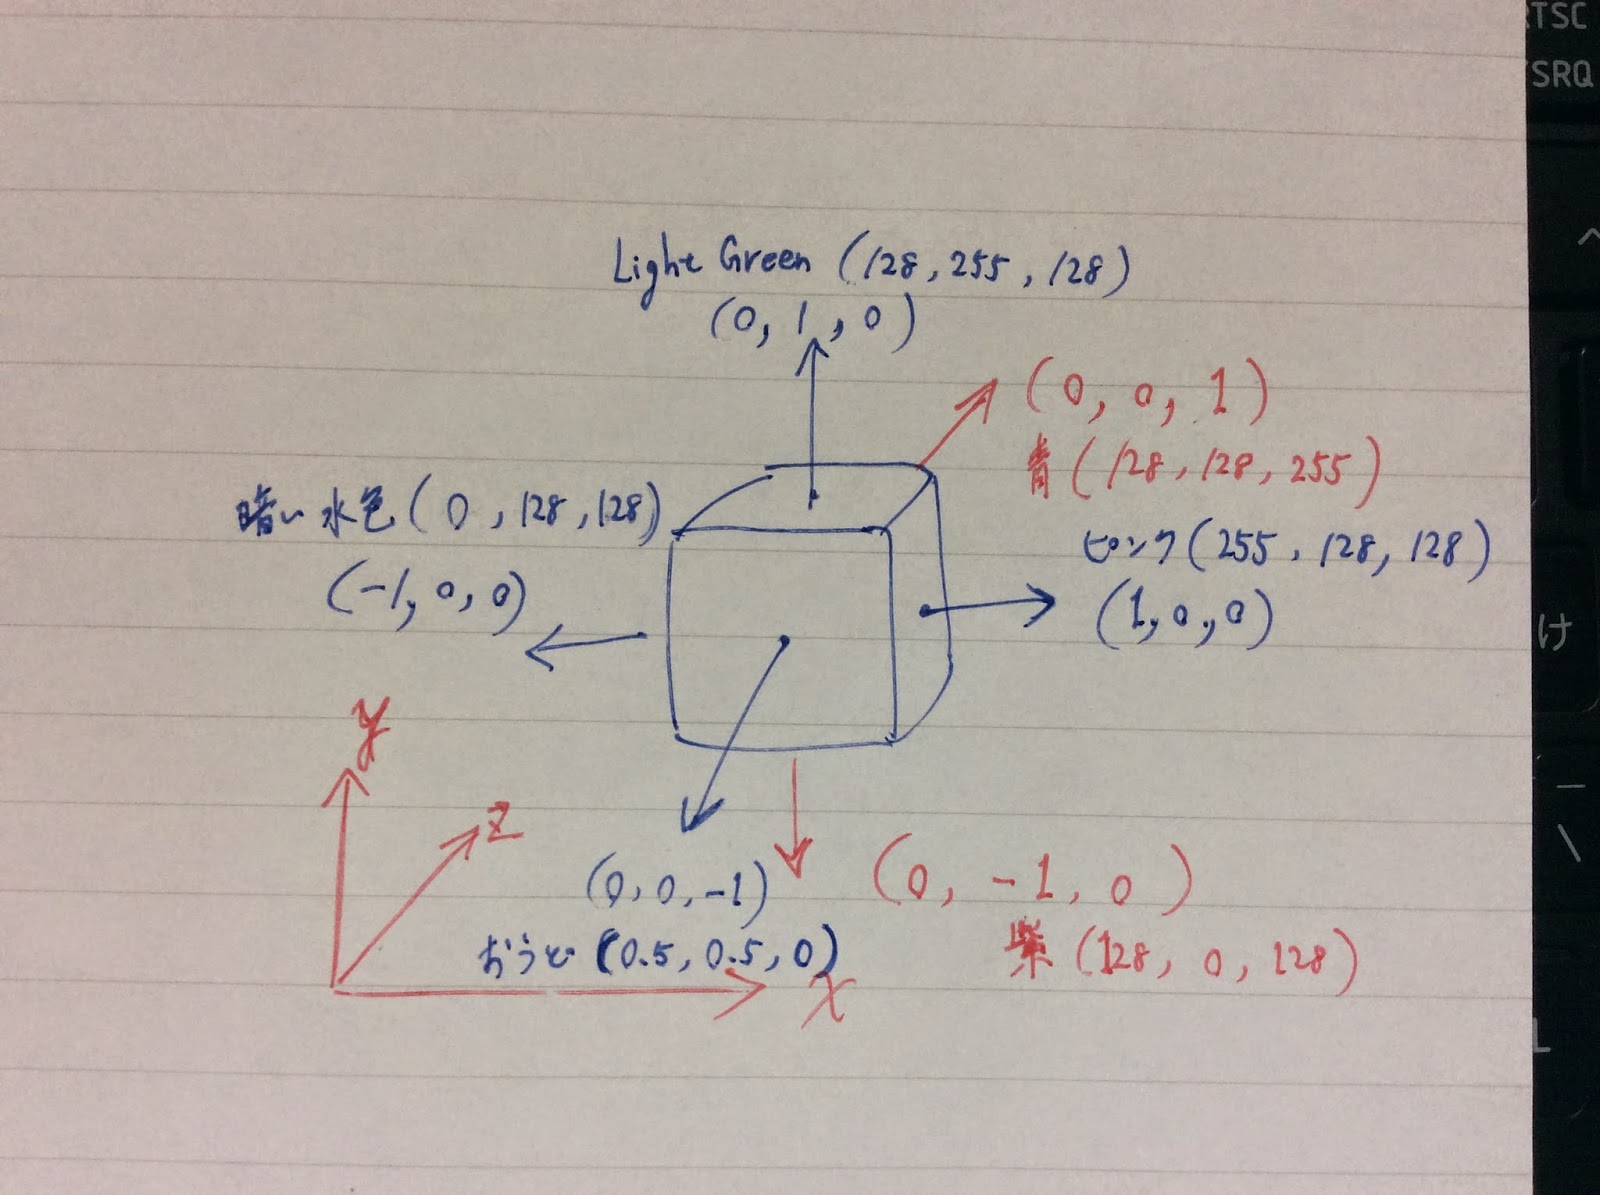 Light Green (128, 255, 128)
(0, 1, 0)
(0, 0, 1)
青 (128, 128, 255)
暗い水色 (0, 128, 128)
(-1, 0, 0)
ピンク (255, 128, 128)
(1, 0, 0)
y
z
x
(0, 0, -1)
おうど (0.5, 0.5, 0)
(0, -1, 0)
紫 (128, 0, 128)
TSC
SRQ
^
け
\